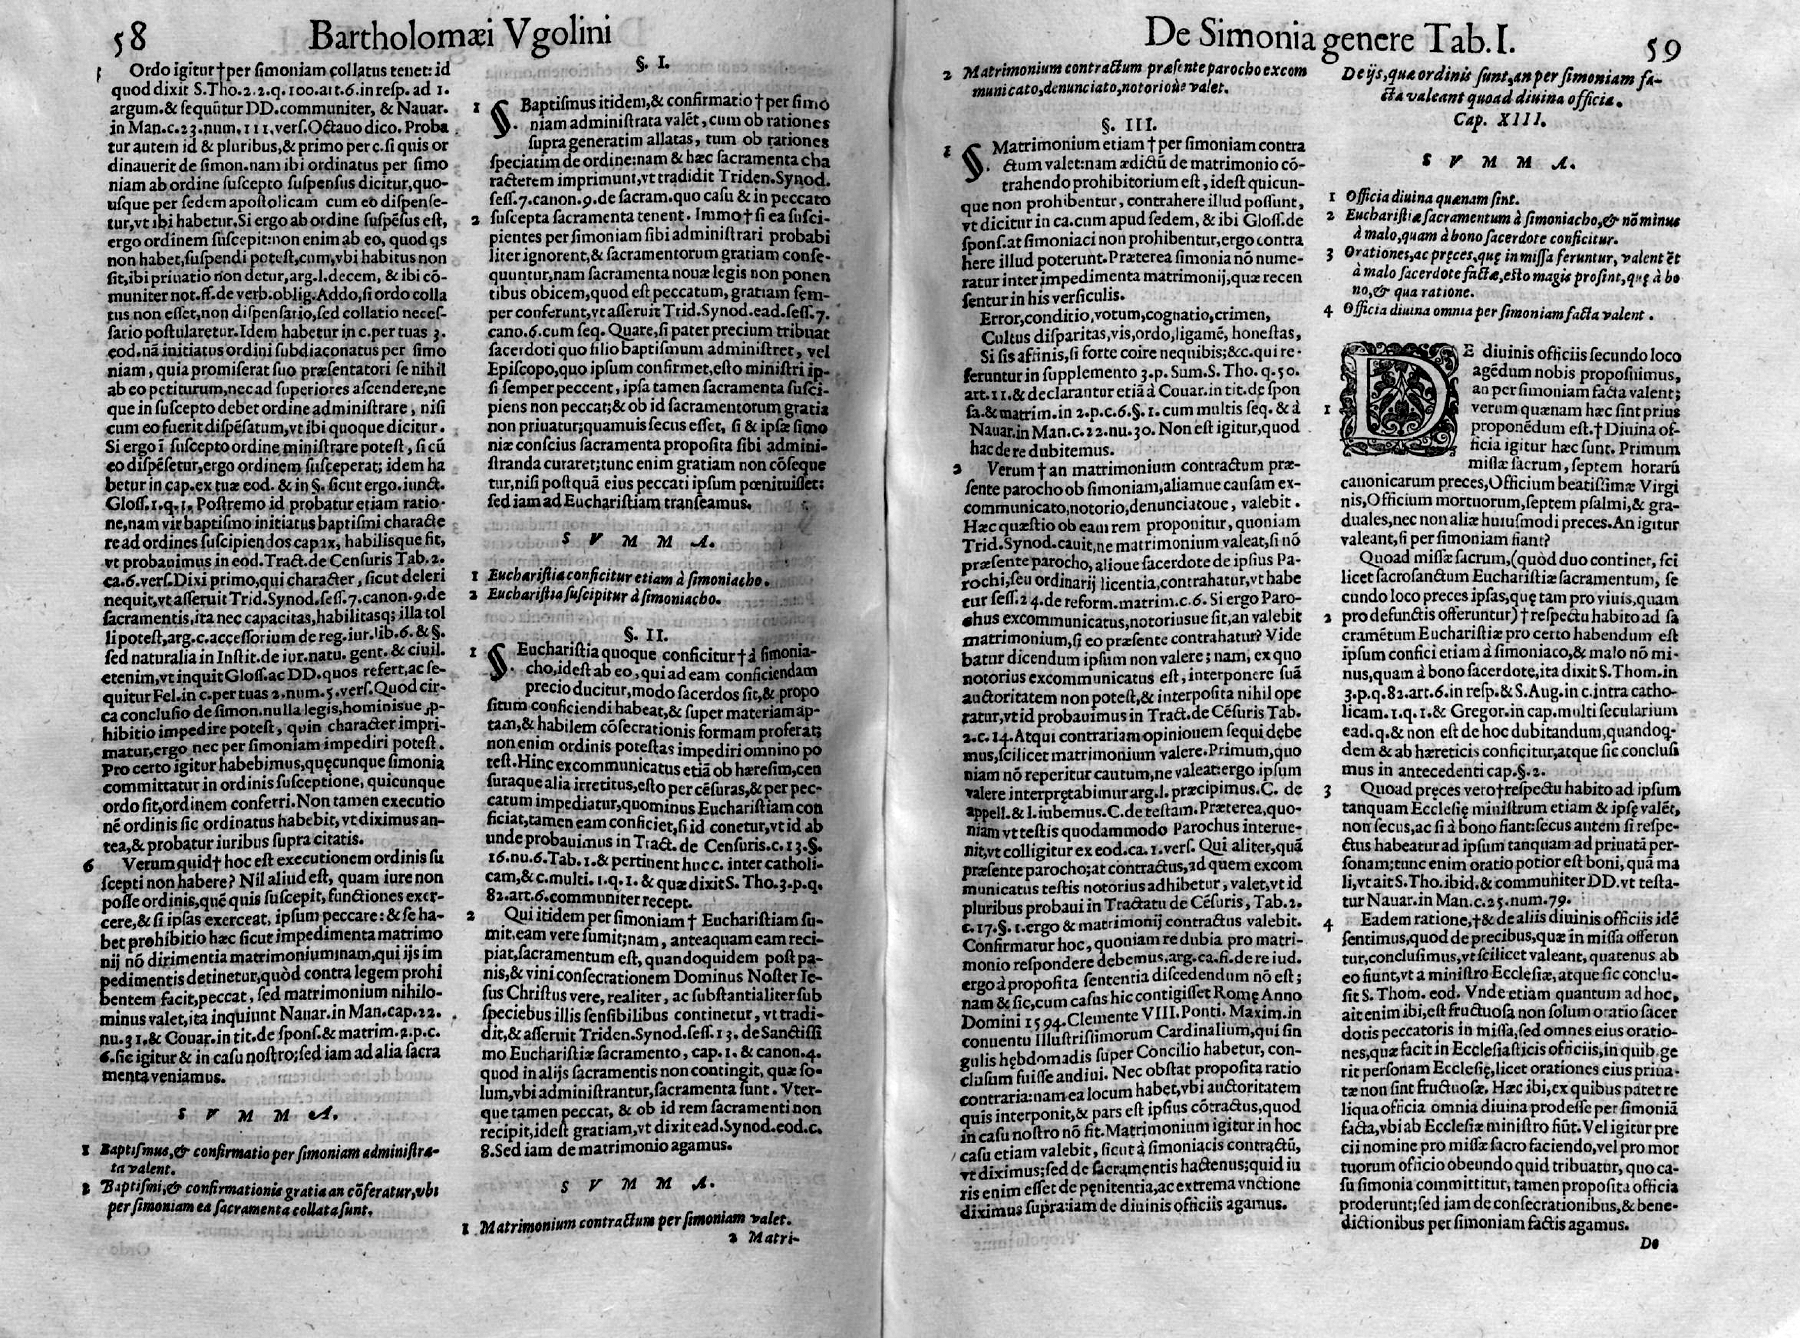 58 Bartholomæi Vgolini
Ordo igitur † per simoniam collatus tenet: id
quod dixit S. Tho. 2.2.q. 100.art.6.in resp. ad 1.
argum.& sequũtur DD.communiter, & Nauar.
in Man.c.23.num.111.vers.Octauo dico. Proba
tur autem id & pluribus,& primo per c.si quis or
dinauerit de simon.nam ibi ordinatus per simo
niam ab ordine suscepto suspensus dicitur, quo-
usque per sedem apostolicam cum eo dispense-
tur,vt ibi habetur. Si ergo ab ordine suspẽsus est,
ergo ordinem suscepit:non enim ab eo, quod qs
non habet,suspendi potest,cum,vbi habitus non
sit,ibi priuatio non detur,arg.l.decem, & ibi cõ-
muniter not.ff.de verb.oblig.Addo,si ordo colla
tus non esset,non dispensatio,sed collatio neces-
sario postularetur.Idem habetur in c.per tuas 3.
eod.nã initiatus ordini subdiaconatus per simo
niam, quia promiserat suo præsentatori se nihil
ab eo petiturum,nec ad superiores ascendere,ne
que in suscepto debet ordine administrare, nisi
cum eo fuerit dispẽsatum,vt ibi quoque dicitur.
Si ergo ĩ suscepto ordine ministrare potest, si cũ
eo dispẽsetur,ergo ordinem susceperat; idem ha
betur in cap.ex tuæ eod. & in §. sicut ergo.iunct.
Gloss.1.q.1. Postremo id probatur etiam ratio-
ne,nam vir baptismo initiatus baptismi characte
re ad ordines suscipiendos capax, habilisque fit,
vt probauimus in eod. Tract.de Censuris Tab.2.
ca.6.vers.Dixi primo,qui character, sicut deleri
nequit,vt asseruit Trid.Synod.sess.7.canon.9.de
sacramentis,ita nec capacitas,habilitasq; illa tol
li potest,arg.c.accessorium de reg.iur.lib.6.& §.
sed naturalia in Instit.de iur.natu. gent. & ciuil.
etenim,vt inquit Gloss.ac DD.quos refert,ac se-
quitur Fel.in c.per tuas 2.num.5.vers.Quod cir-
ca conclusio de simon.nulla legis,hominisue ,p-
hibitio impedire potest, quin character impri-
matur,ergo nec per simoniam impediri potest.
Pro certo igitur habebimus,quęcunque simonia
committatur in ordinis susceptione, quicunque
ordo sit,ordinem conferri. Non tamen executio
nẽ ordinis sic ordinatus habebit, vt diximus an-
tea,& probatur iuribus supra citatis.
6 Verum quid † hoc est executionem ordinis su
scepti non habere? Nil aliud est, quam iure non
posse ordinis,quẽ quis suscepit, functiones exer-
cere,& si ipsas exerceat, ipsum peccare: & se ha-
bet prohibitio hæc sicut impedimenta matrimo
nij nõ dirimentia matrimonium;nam,qui ijs im
pedimentis detinetur,quòd contra legem prohi
bentem facit,peccat, sed matrimonium nihilo-
minus valet,ita inquiunt Nauar.in Man.cap.22.
nu.31.& Couar.in tit.de spons.& matrim.2.p.c.
6.sic igitur & in casu nostro;sed iam ad alia sacra
menta veniamus.
S V M M A.
1 Baptismus,& confirmatio per simoniam administra-
ta valent.
2 Baptismi,& confirmationis gratia an cõferatur,vbi
per simoniam ea sacramenta collata sunt.
§. I.
1 §. Baptismus itidem,& confirmatio † per simo
niam administrata valẽt, cum ob rationes
supra generatim allatas, tum ob rationes
speciatim de ordine:nam & hæc sacramenta cha
racterem imprimunt,vt tradidit Triden.Synod.
sess.7.canon.9.de sacram.quo casu & in peccato
2 suscepta sacramenta tenent. Immo † si ea susci-
pientes per simoniam sibi administrari probabi
liter ignorent,& sacramentorum gratiam conse-
quuntur,nam sacramenta nouæ legis non ponen
tibus obicem,quod est peccatum, gratiam sem-
per conferunt,vt asseruit Trid.Synod.ead.sess.7.
cano.6.cum seq. Quare, si pater precium tribuat
sacerdoti quo filio baptismum administret, vel
Episcopo,quo ipsum confirmet,esto ministri ip-
si semper peccent, ipsa tamen sacramenta susci-
piens non peccat;& ob id sacramentorum gratia
non priuatur;quamuis secus esset, si & ipsæ simo
niæ conscius sacramenta proposita sibi admini-
stranda curaret;tunc enim gratiam non cõseque
tur,nisi postquã eius peccati ipsum pœnituisset:
sed iam ad Eucharistiam transeamus.
S V M M A.
1 Eucharistia conficitur etiam à simoniacho.
2 Eucharistia suscipitur à simoniacho.
§. II.
1 §. Eucharistia quoque conficitur † à simonia-
cho,idest ab eo, qui ad eam conficiendam
precio ducitur, modo sacerdos sit,& propo
situm conficiendi habeat,& super materiam ap-
tam,& habilem cõsecrationis formam proferat;
non enim ordinis potestas impediri omnino po
test. Hinc excommunicatus etiã ob hæresim,cen
suraque alia irretitus,esto per cẽsuras,& per pec-
catum impediatur,quominus Eucharistiam con
ficiat,tamen eam conficiet,si id conetur,vt id ab
unde probauimus in Tract. de Censuris.c.13.§.
16.nu.6.Tab.1.& pertinent huc c. inter catholi-
cam,& c.multi. 1.q.1. & quæ dixit S. Tho.3.p.q.
82.art.6.communiter recept.
2 Qui itidem per simoniam † Eucharistiam su-
mit,eam vere sumit;nam, anteaquam eam reci-
piat,sacramentum est, quandoquidem post pa-
nis,& vini consecrationem Dominus Noster Ie-
sus Christus vere, realiter, ac substantialiter sub
speciebus illis sensibilibus continetur, vt tradi-
dit,& asseruit Triden.Synod.sess.13.de Sanctissi
mo Eucharistiæ sacramento, cap.1.& canon.4.
quod in alijs sacramentis non contingit, quæ so-
lum,vbi administrantur,sacramenta sunt. Vter-
que tamen peccat, & ob id rem sacramenti non
recipit,idest gratiam,vt dixit ead.Synod.eod.c.
8.Sed iam de matrimonio agamus.
S V M M A.
1 Matrimonium contractum per simoniam valet.
2 Matri-
De Simonia genere Tab.I. 59
2 Matrimonium contractum præsente parocho excom
municato,denunciato,notorioúe valet.
§. III.
1 §. Matrimonium etiam † per simoniam contra
ctum valet:nam ædictũ de matrimonio cõ-
trahendo prohibitorium est, idest quicun-
que non prohibentur, contrahere illud possunt,
vt dicitur in ca.cum apud sedem, & ibi Gloss.de
spons.at simoniaci non prohibentur,ergo contra
here illud poterunt. Præterea simonia nõ nume-
ratur inter impedimenta matrimonij,quæ recen
sentur in his versiculis.
Error,conditio,votum,cognatio,crimen,
Cultus disparitas,vis,ordo,ligamẽ, honestas,
Si sis affinis,si forte coire nequibis;&c.qui re-
feruntur in supplemento 3.p. Sum.S. Tho. q.50.
art.11.& declarantur etiã à Couar.in tit.de spon
sa.& matrim.in 2.p.c.6.§.1.cum multis seq.& à
Nauar.in Man.c.22.nu.30. Non est igitur,quod
hac de re dubitemus.
2 Verum † an matrimonium contractum præ-
sente parocho ob simoniam,aliamue causam ex-
communicato,notorio,denunciatoue, valebit.
Hæc quæstio ob eam rem proponitur, quoniam
Trid.Synod.cauit,ne matrimonium valeat,si nõ
præsente parocho, alioue sacerdote de ipsius Pa-
rochi,seu ordinarij licentia,contrahatur,vt habe
tur sess.24.de reform.matrim.c.6. Si ergo Paro-
chus excommunicatus,notoriusue sit,an valebit
matrimonium,si eo præsente contrahatur? Vide
batur dicendum ipsum non valere; nam, ex quo
notorius excommunicatus est, interponere suã
auctoritatem non potest,& interposita nihil ope
ratur,vt id probauimus in Tract.de Cẽsuris Tab.
2.c.14. Atqui contrariam opinionem sequi debe
mus,scilicet matrimonium valere.Primum,quo
niam nõ reperitur cautum,ne valeat:ergo ipsum
valere interprętabimur arg.l.præcipimus.C. de
appell.& l.iubemus.C.de testam. Præterea, quo-
niam vt testis quodammodo Parochus interue-
nit,vt colligitur ex eod.ca.1.vers. Qui aliter,quã
præsente parocho;at contractus,ad quem excom
municatus testis notorius adhibetur, valet,vt id
pluribus probaui in Tractatu de Cẽsuris, Tab.2.
c.17.§.1.ergo & matrimonij contractus valebit.
Confirmatur hoc, quoniam re dubia pro matri-
monio respondere debemus,arg.ca.fi.de re iud.
ergo à proposita sententia discedendum nõ est;
nam & sic,cum casus hic contigisset Romę Anno
Domini 1594.Clemente VIII. Ponti. Maxim.in
conuentu Illustrissimorum Cardinalium,qui sin
gulis hębdomadis super Concilio habetur, con-
clusum fuisse audiui. Nec obstat proposita ratio
contraria:nam ea locum habet,vbi auctoritatem
quis interponit,& pars est ipsius cõtractus,quod
in casu nostro nõ fit. Matrimonium igitur in hoc
casu etiam valebit, sicut à simoniacis contractũ,
vt diximus;sed de sacramentis hactenus;quid iu
ris enim esset de pęnitentia,ac extrema vnctione
diximus supra:iam de diuinis officiis agamus.
De ijs,quæ ordinis sunt,an per simoniam fa-
cta valeant quoad diuina officia.
Cap. XIII.
S V M M A.
1 Officia diuina quænam sint.
2 Eucharistiæ sacramentum à simoniacho,& nõ minus
à malo,quam à bono sacerdote conficitur.
3 Orationes,ac pręces,quę in missa feruntur, valent ẽt
à malo sacerdote factæ,esto magis prosint,quę à bo
no,& qua ratione.
4 Officia diuina omnia per simoniam facta valent.
DE diuinis officiis secundo loco
agẽdum nobis proposuimus,
an per simoniam facta valent;
1 verum quænam hæc sint prius
proponẽdum est.† Diuina of-
ficia igitur hæc sunt. Primum
missæ sacrum, septem horarũ
canonicarum preces,Officium beatissimæ Virgi
nis,Officium mortuorum,septem psalmi,& gra-
duales,nec non aliæ huiusmodi preces.An igitur
valeant,si per simoniam fiant?
Quoad missæ sacrum,(quòd duo continet, sci
licet sacrosanctum Eucharistiæ sacramentum, se
cundo loco preces ipsas,quę tam pro viuis,quam
2 pro defunctis offeruntur) † respectu habito ad sa
cramẽtum Eucharistiæ pro certo habendum est
ipsum confici etiam à simoniaco,& malo nõ mi-
nus,quam à bono sacerdote,ita dixit S.Thom.in
3.p.q.82.art.6.in resp.& S.Aug.in c.intra catho-
licam.1.q.1.& Gregor.in cap.multi secularium
ead.q.& non est de hoc dubitandum,quandoq-
dem & ab hæreticis conficitur,atque sic conclusi
mus in antecedenti cap.§.2.
3 Quoad pręces vero † respectu habito ad ipsum
tanquam Ecclesię ministrum etiam & ipsę valẽt,
non secus,ac si à bono fiant:secus autem si respe-
ctus habeatur ad ipsum tanquam ad priuatã per-
sonam;tunc enim oratio potior est boni, quã ma
li,vt ait S.Tho.ibid.& communiter DD.vt testa-
tur Nauar.in Man.c.25.num.79.
4 Eadem ratione,†& de aliis diuinis officiis idẽ
sentimus,quod de precibus,quæ in missa offerun
tur,conclusimus,vt scilicet valeant, quatenus ab
eo fiunt,vt a ministro Ecclesiæ, atque sic conclu-
sit S. Thom. eod. Vnde etiam quantum ad hoc,
ait enim ibi,est fructuosa non solum oratio sacer
dotis peccatoris in missa,sed omnes eius oratio-
nes,quæ facit in Ecclesiasticis officiis,in quib.ge
rit personam Ecclesię,licet orationes eius priua-
tæ non sint fructuosæ. Hæc ibi,ex quibus patet re
liqua officia omnia diuina prodesse per simoniã
facta,vbi ab Ecclesiæ ministro fiũt. Vel igitur pre
cii nomine pro missæ sacro faciendo,vel pro mor
tuorum officio obeundo quid tribuatur, quo ca-
su simonia committitur, tamen proposita officia
proderunt;sed iam de consecrationibus,& bene-
dictionibus per simoniam factis agamus.
De